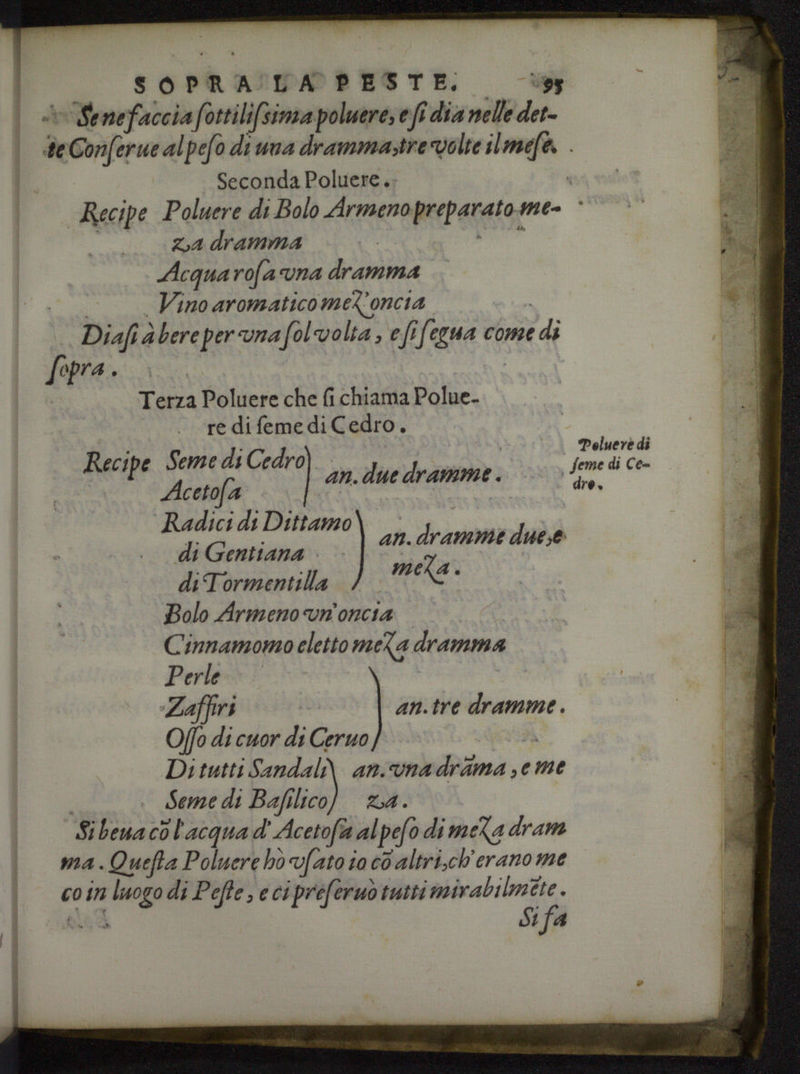 SOPRA LA PESTE. 95
Se ne faccia ſottiliſsima poluere, e ſi dia nelle det-
te Conſerue al peſo di una dramma, tre volte il meſe.
Seconda Poluere.
Recipe Poluere di Bolo Armeno preparato me-
za dramma
Acqua roſa vna dramma
Vino aromatico mez'oncia
Diaſi à bere per vna ſol volta, e ſi ſegua come di
ſopra.
Terza Poluere che ſi chiama Polue-
re di ſeme di Cedro.
Poluere di
ſeme di Ce-
dro.
Recipe Seme di Cedro
Acetoſa } an. due dramme.
Radici di Dittamo
di Gentiana } an. dramme due, e
di Tormentilla meza.
Bolo Armeno vn'oncia
Cinnamomo eletto meza dramma
Perle
Zaffiri } an. tre dramme.
Oſſo di cuor di Ceruo
Di tutti Sandali } an. vna drãma, e me
Seme di Baſilico za.
Si beua cõ l'acqua d'Acetoſa al peſo di meza dram
ma. Queſta Poluere hò vſato io cõ altri, ch'erano me
co in luogo di Peſte, e ci preſeruò tutti mirabilmẽte.
Si fa